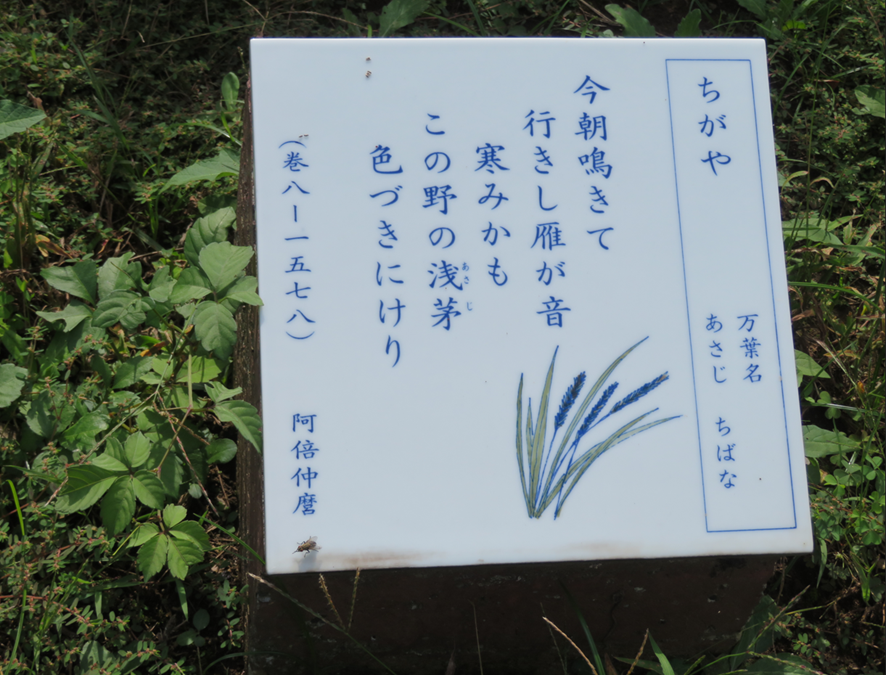 ちがや
万葉名
あさじ ちばな
今朝鳴きて
行きし雁が音
寒みかも
この野の浅茅
あさじ
色づきにけり
(巻八ー一五七八)
阿倍仲麿